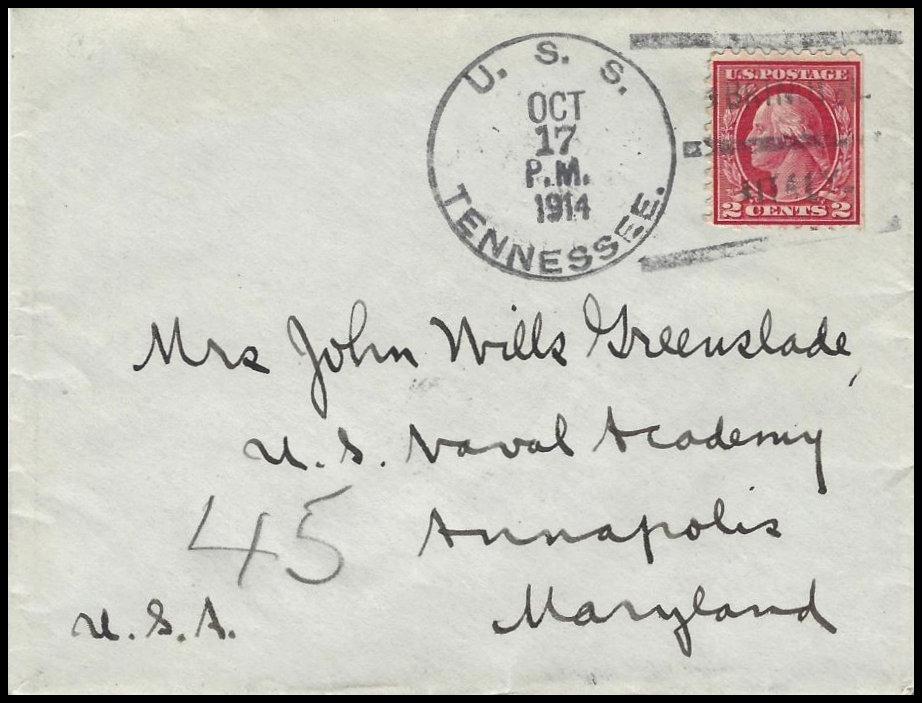 U. S. S.
OCT
17
P.M.
1914
TENNESSEE.
U.S. POSTAGE
ITALY.
2 CENTS 2
Mrs John Wills Greenslade,
U. S. Naval Academy
Annapolis
Maryland
45
U. S. A.